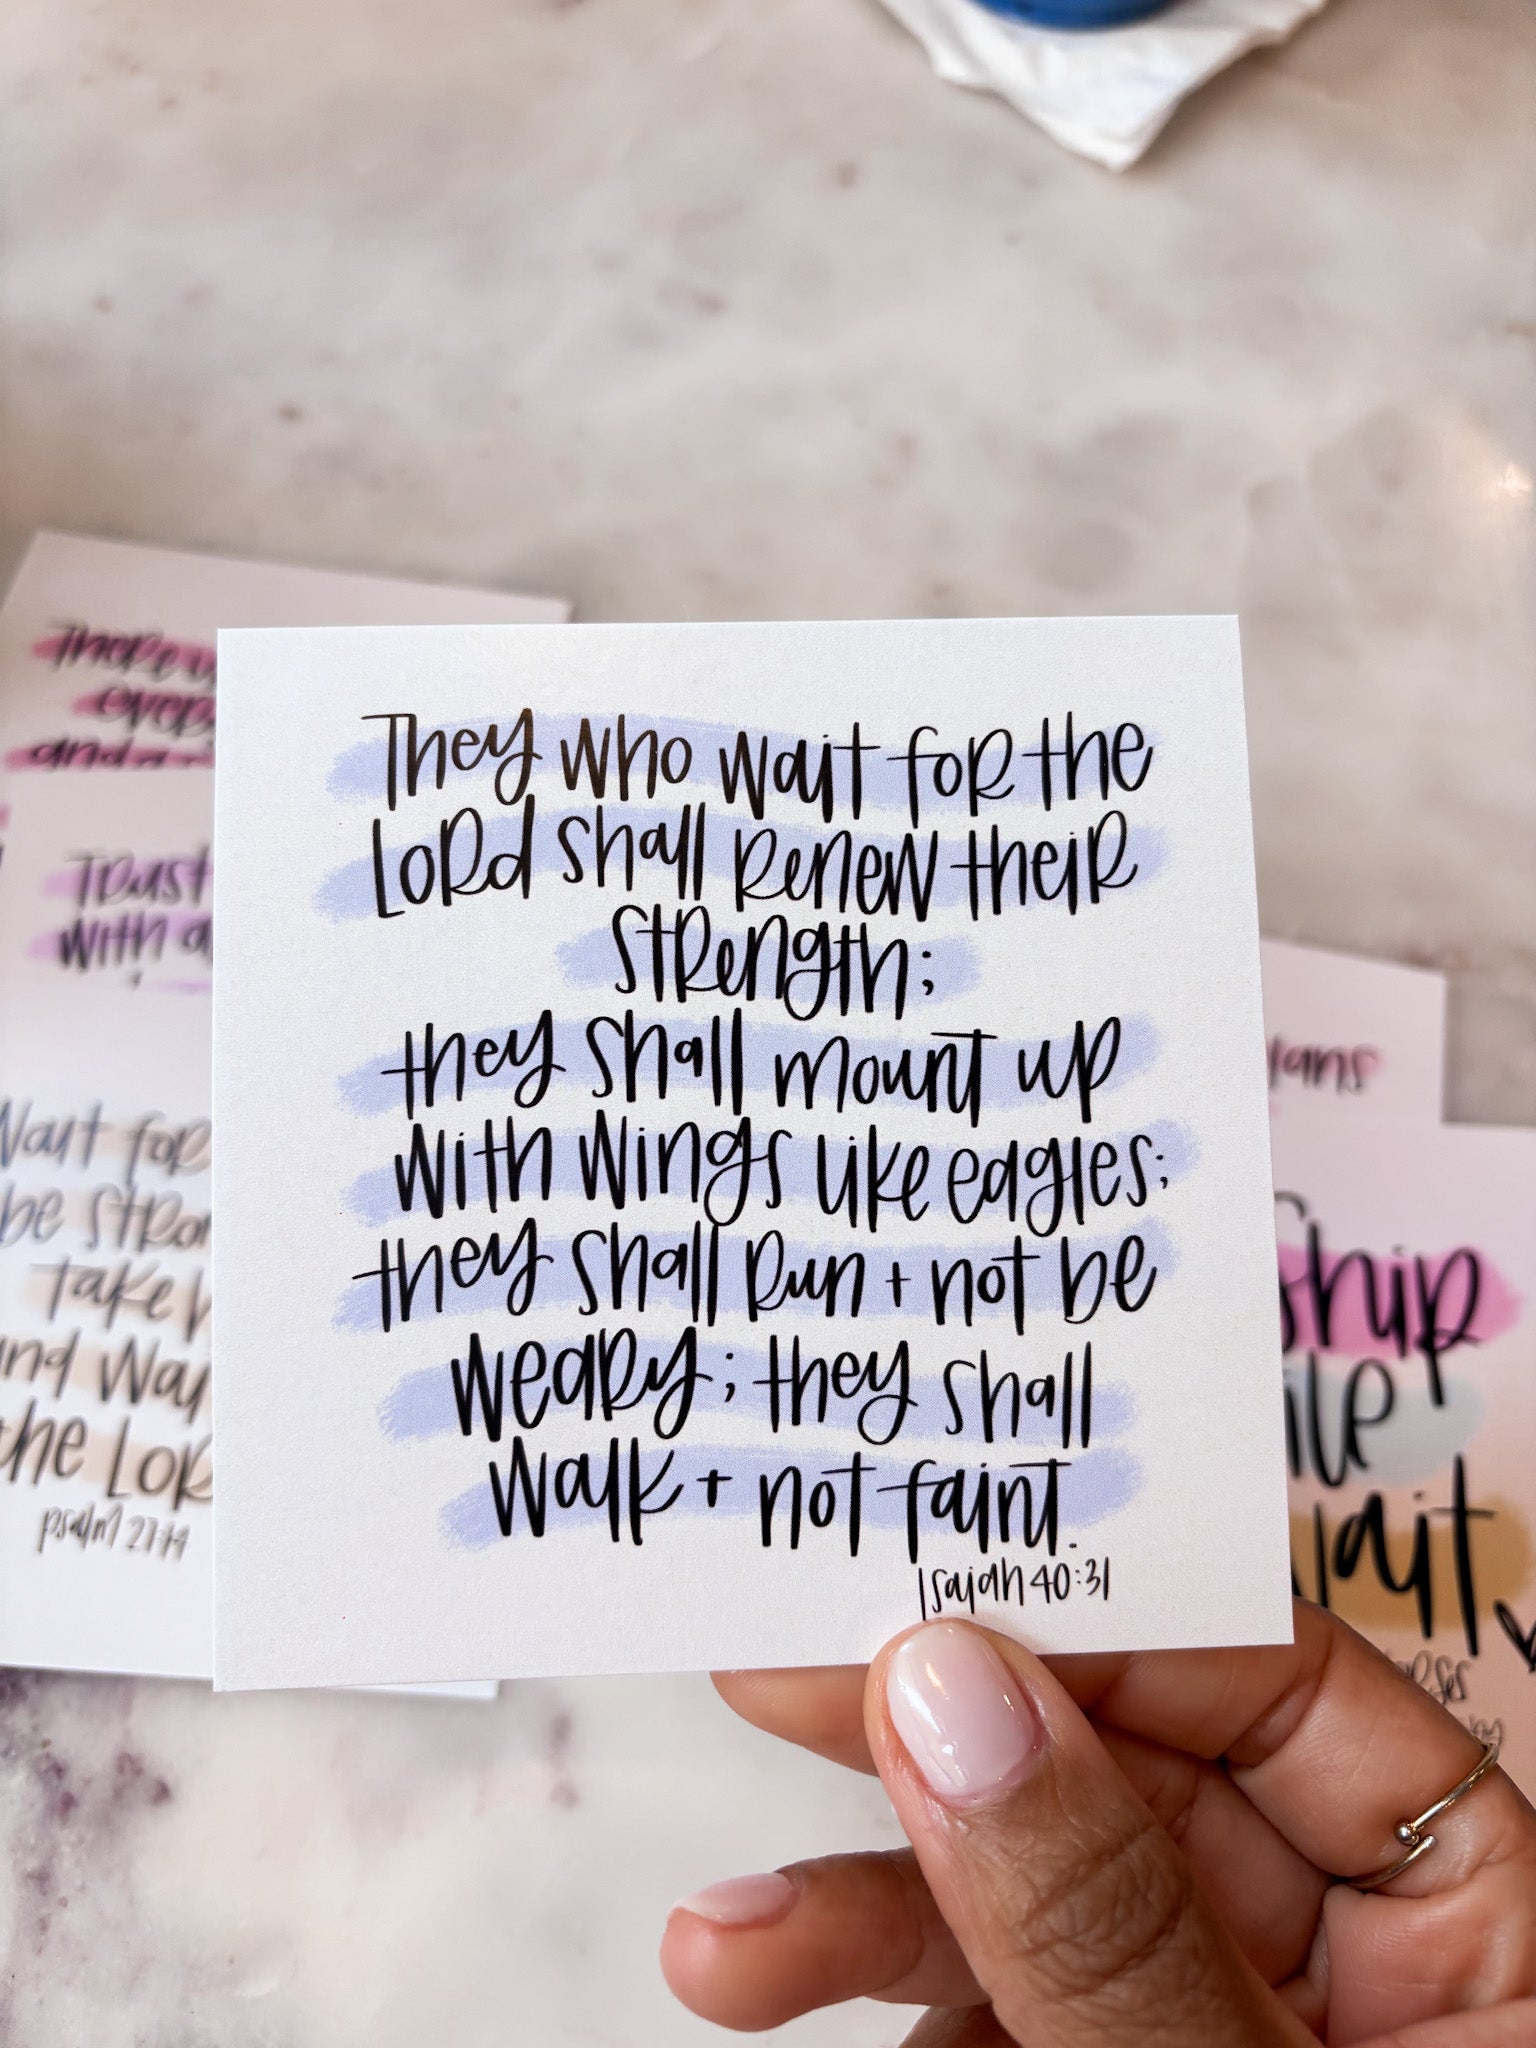 They who wait for the
Lord shall renew their
strength;
they shall mount up
with wings like eagles;
they shall run + not be
weary; they shall
walk + not faint.
Isaiah 40:31
There
and a
Trust
with
Wait for
be
take
and
the
psalm 27:14